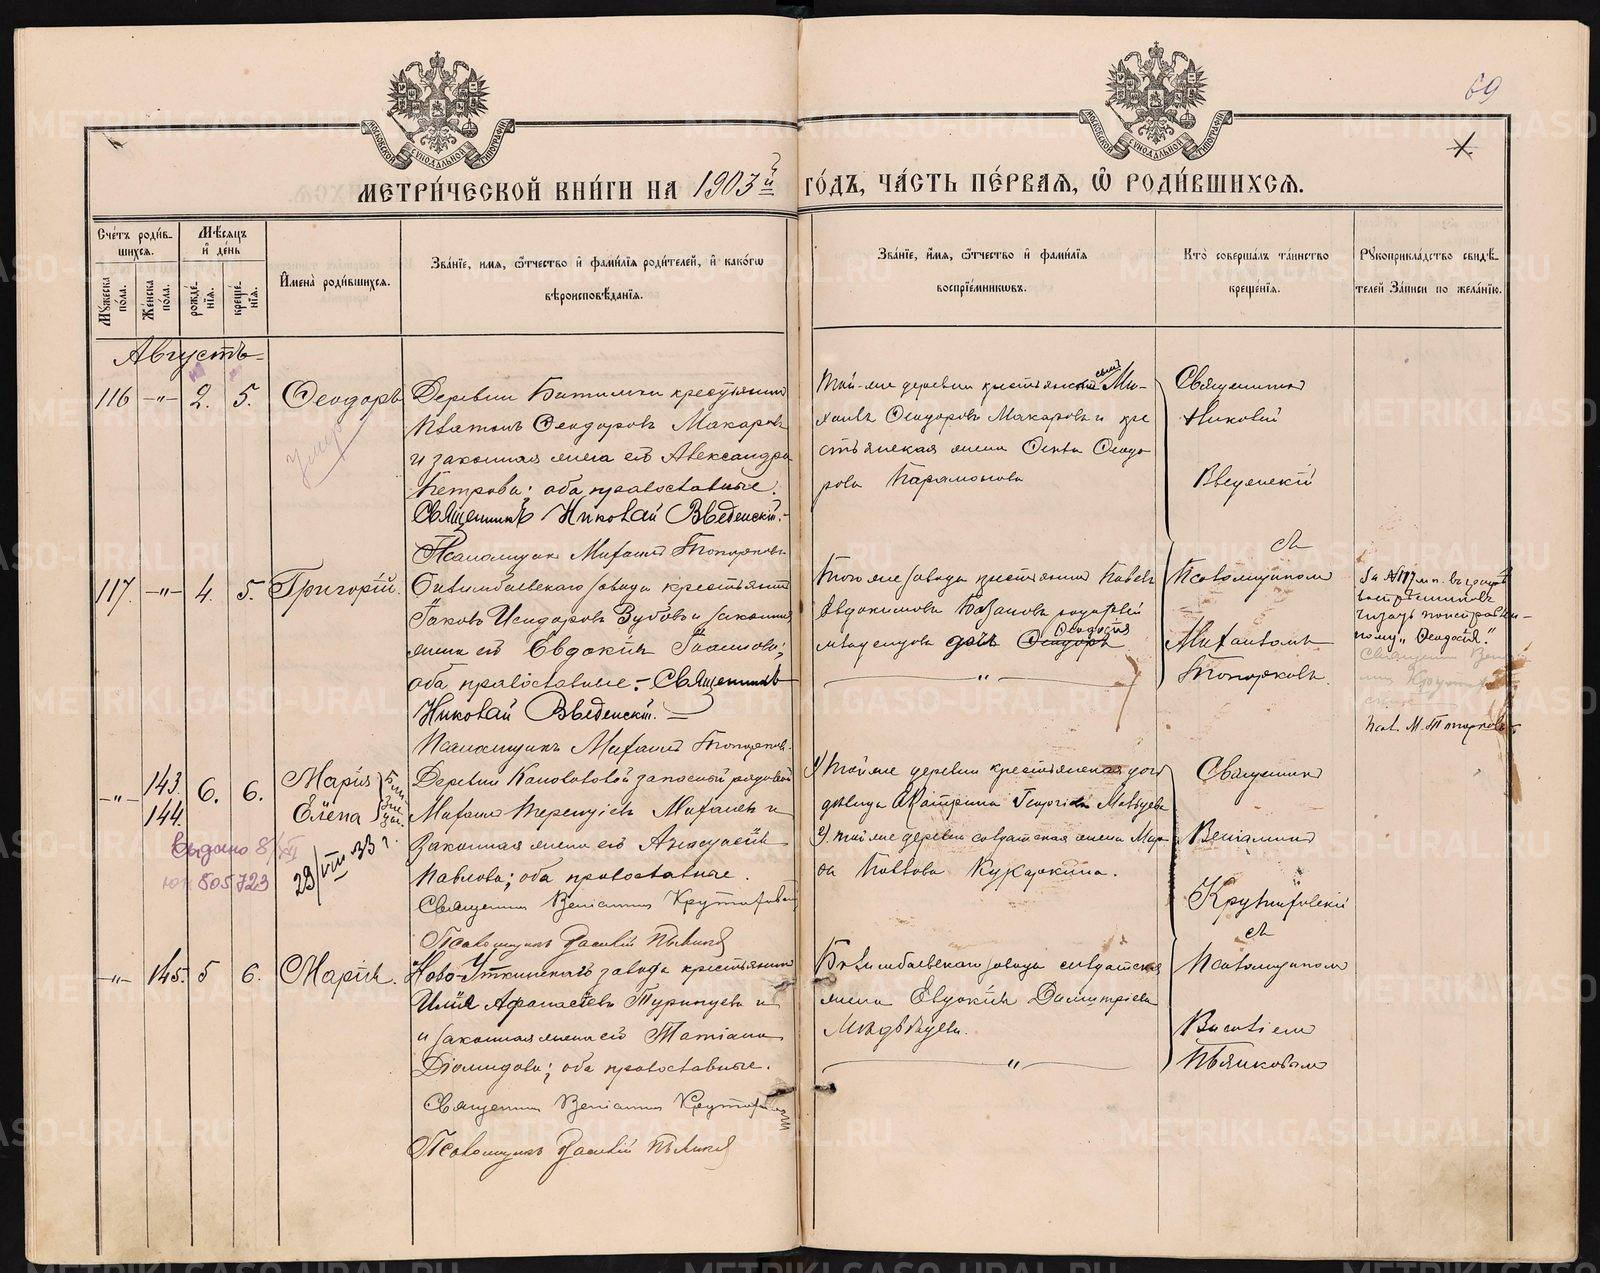 69
МЕТРИ́ЧЕСКОЙ КНИ́ГИ НА 1903й ГО́ДЪ, ЧА́СТЬ ПЕ́РВАѦ, Ѡ҆ РОДИ́ВШИХСѦ.
Сче́тъ роди́вшихся.
Мѣ́сяцъ и҆ де́нь
Мꙋ́жеска по́ла.
Же́нска по́ла.
рожде́нїѧ.
креще́нїѧ.
И҆мена̀ роди́вшихся.
Зва́нїе, имѧ, ѻ҆́тчество и҆ фами́лїѧ роди́телей, и҆ како́гѡ
вѣроисповѣ́данїѧ.
Зва́нїе, и҆́мѧ, ѻ҆́тчество и҆ фами́лїѧ
воспрїе́мникѡвъ.
Кто̀ соверша́лъ та́инство
креще́нїѧ.
Рꙋкоприкла́дство свидѣ́телей за́писи по жела́нїю.
Августъ
116 -„- 2. 5. Ѳеодоръ
умеръ
Деревни Битимки крестьянинъ
Платонъ Ѳеодоровъ Макаровъ
и законная жена его Александра
Петрова; оба православные.
Священникъ Николай Введенскій.
Псаломщикъ Михаилъ Топорковъ
Той-же деревни крестьянскій сынъ Ми-
хаилъ Ѳеодоровъ Макаровъ и кре
стьянская жена Ѳеодо
рова Парамонова
Священникъ
Николай
Введенскій
117. -„- 4. 5. Григорій.
Билимбаевскаго завода крестьянинъ
Іаковъ Исидоровъ Зубовъ и законная
жена его Евдокія Іоаннова;
оба православные. Священникъ
Николай Введенскій.
Псаломщикъ Михаилъ Топорковъ.
Того же завода крестьянинъ Павелъ
Евдокимовъ Казаковъ
дочь Ѳеодоръ Ѳеодосія
съ
Псаломщикомъ
Михаиломъ
Топорковъ.
За №117 м.п. въ графѣ
воспріемниковъ
читать по исправлен-
ному „Ѳеодосія."
Псал. М. Топорковъ
-„- 143. 144. 6. 6. Марія Елена близнецы.
выдано 8/XII
805723
29/VIII 33 г.
Деревни Коноваловой запасный рядовой
Михаилъ Терентіевъ и
законная жена его Анастасія
Павлова; оба православные.
Священникъ Веніаминъ Крутиховскій
Псаломщикъ Василій Пьянковъ
1) Той же деревни крестьянская дочь
дѣвица Екатерина Георгіева
2) той же деревни солдатская жена Мар-
ѳа Павлова Кукаркина.
Священникъ
Веніаминъ
Крутиховскій
-„- 145. 5 6. Марія.
Ново-Уткинскаго завода крестьянинъ
Илія Аѳанасіевъ Турынцевъ и
и законная жена его Татіана
Діомидова; оба православные.
Священникъ Веніаминъ Крутиховскій
Псаломщикъ Василій Пьянковъ
Билимбаевскаго завода солдатская
жена Евдокія Димитріева
съ
Псаломщикомъ
Василіемъ
Пьянковымъ
METRIKI.GASO-URAL.RU